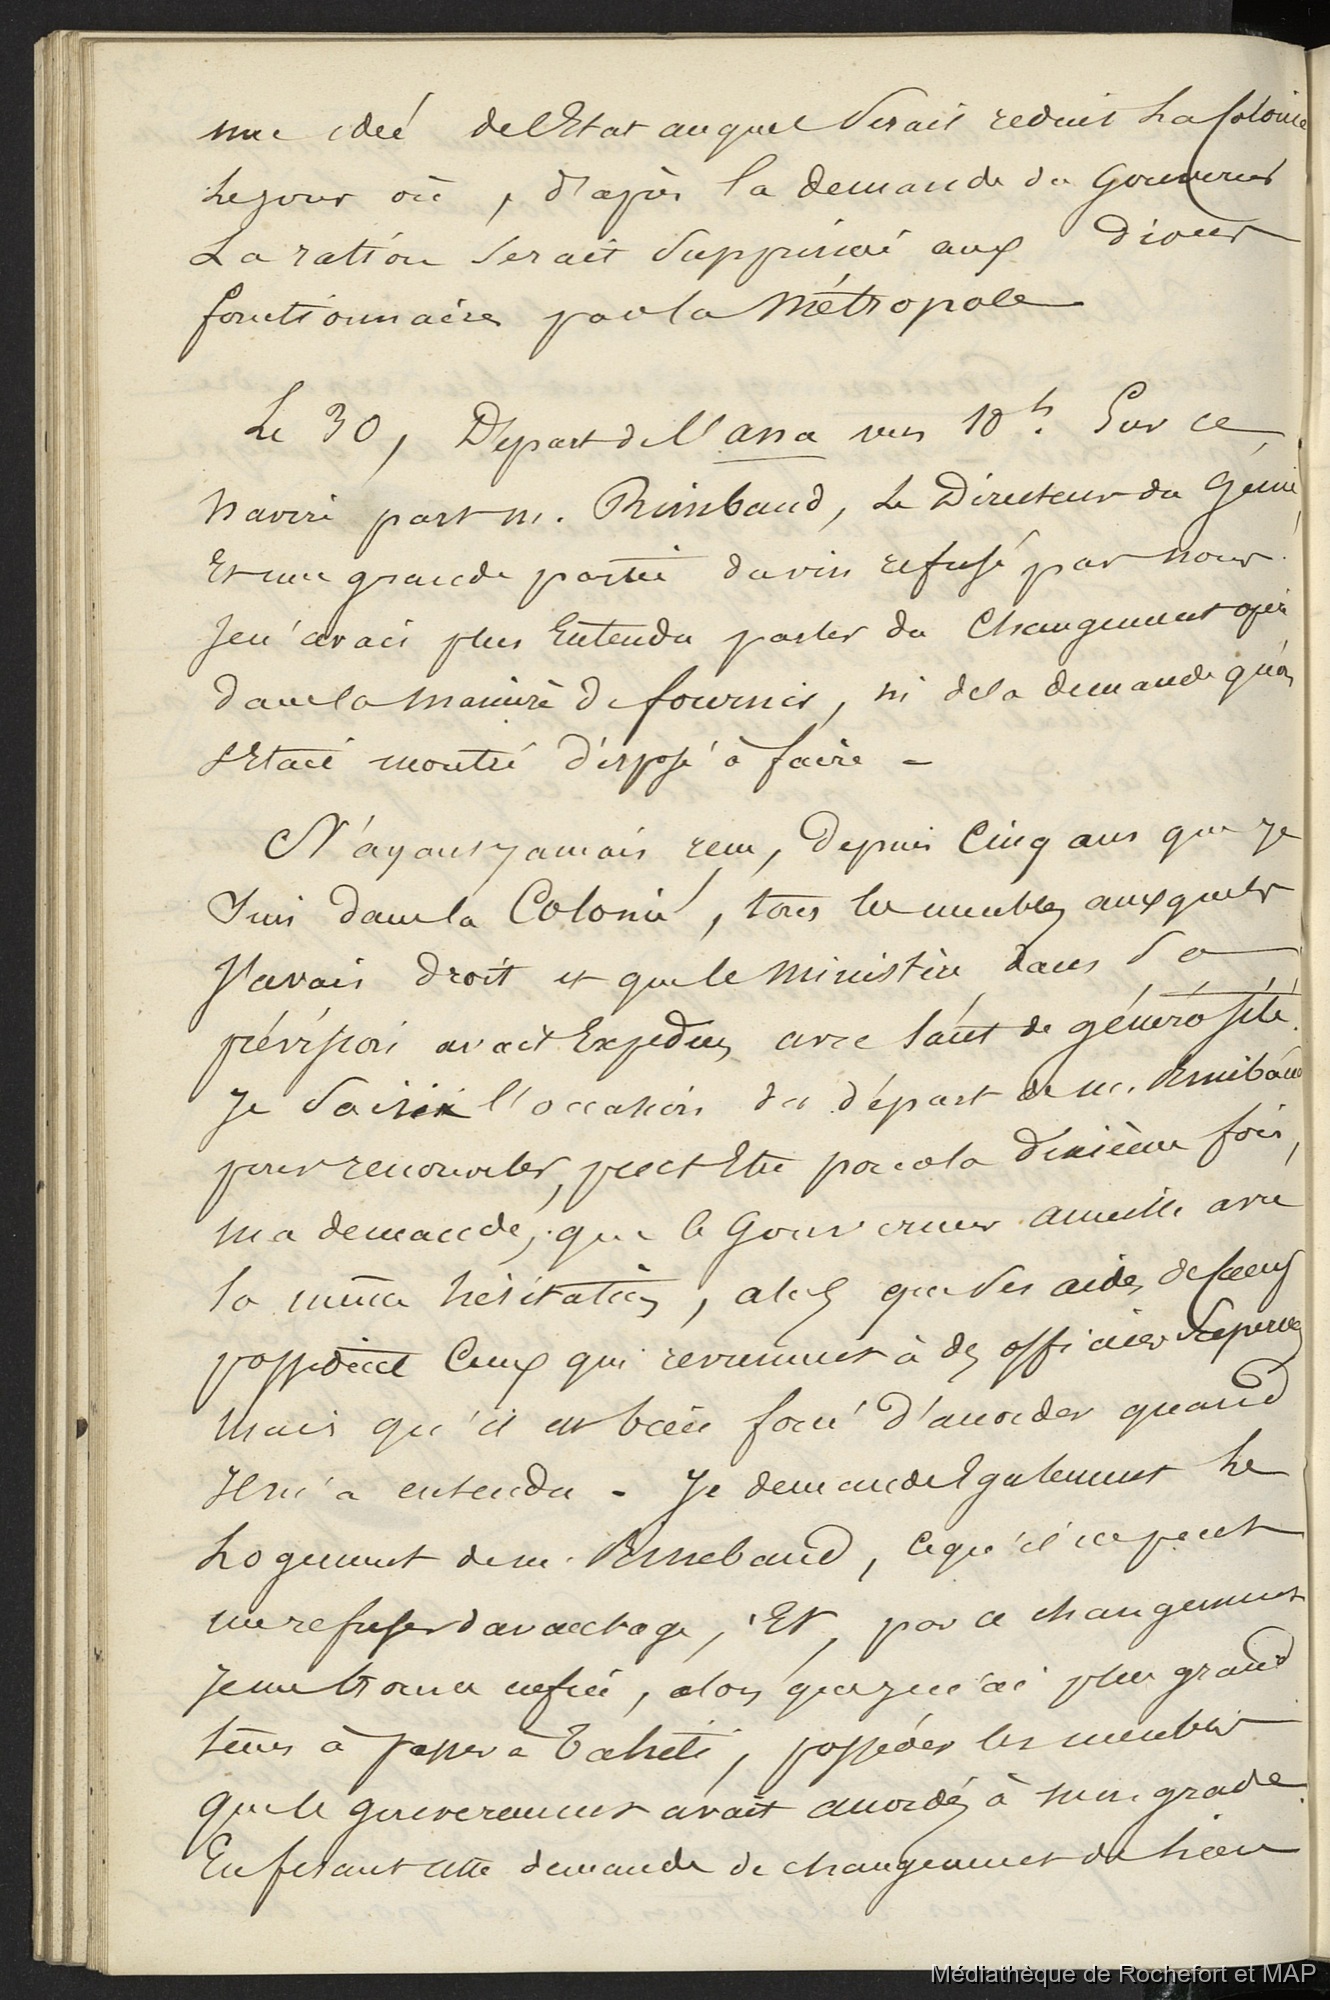 une idée de l'Etat auquel serait reduit la Colonie
le jour où, d'après la demande du Gouverneur
La ration serait supprimée aux divers
fonctionnaires par la Métropole
Le 30, Départ de l'anna vers 10h. Sur ce
navire part m. Rimbaud, le Directeur du Génie
et une grande partie du vin refusé par nous.
Je n'avais plus entendu parler du changement
dans la manière de fournir, ni de la demande qu'on
s'etait montré disposé à faire -
N'ayant jamais reçu, depuis cinq ans que je
suis dans la Colonie, tous les meubles auxquels
J'avais droit et que le ministère, dans sa
prévision avait Expédiés avec tant de générosité.
Je saisis l'occasion du départ de m. Rimbaud
pour renouveler, peut Etre pour la dixième fois,
ma demande, que le Gouverneur acceuille avec
la même hésitation, alors que ses aides de Camp
possèdent Ceux qui reviennent à des officiers Supérieurs
mais qu'il est bien forcé d'accorder quand
Il m'a entendu - Je demande Egalement le
Logement de m. Rimbaud, ce qu'il ne peut
me refuser davantage, Et, par ce changement
Je me trouve enfin, alors que je n'ai plus grand
tems à passer à Tahiti, posséder les meubles
que le gouvernement avait accordés à mon grade.
En fesant cette demande de changement de lieu
Médiathèque de Rochefort et MAP